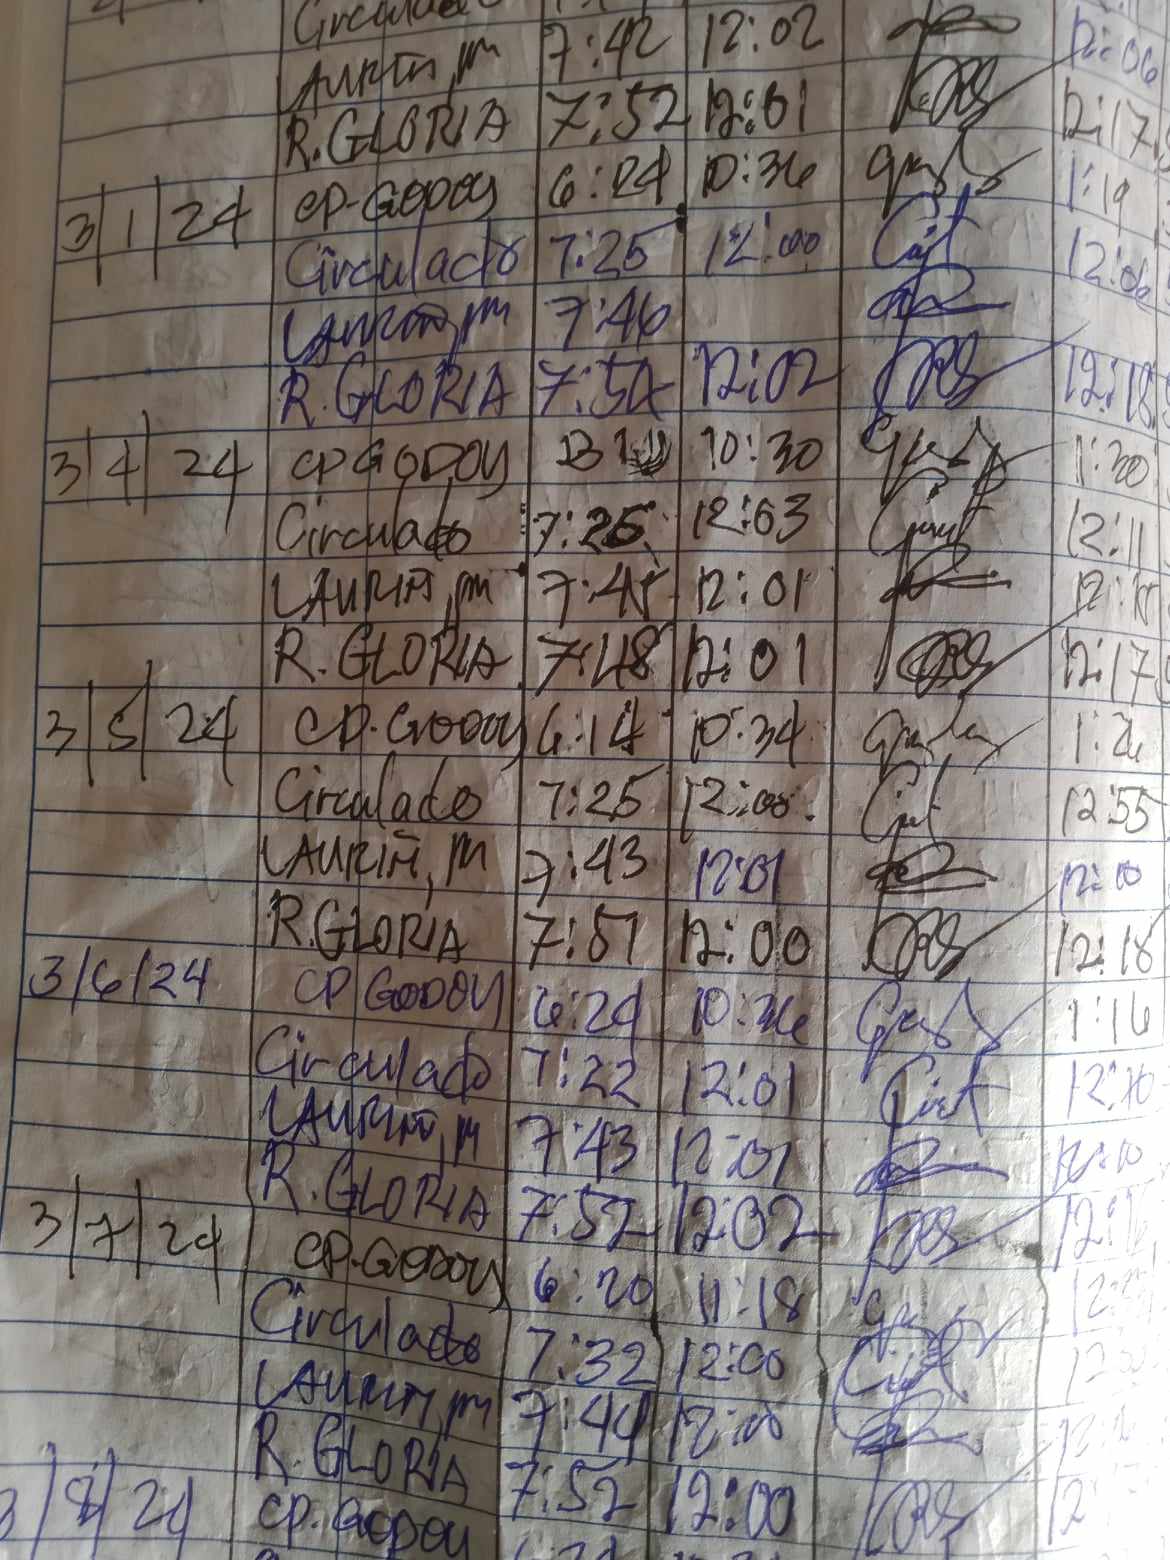 Circulado
LAURITA, M 7:42 12:02 12:06
R. GLORIA 7:52 12:01 12:17
3/1/24 CP. GODOY 6:24 10:36 1:19
Circulado 7:25 12:00 12:06
LAURITA, M 7:46
R. GLORIA 7:52 12:02 12:18
3/4/24 CP GODOY 10:30 1:30
Circulado 7:25 12:03 12:11
LAURITA, M 7:45 12:01
R. GLORIA 7:48 12:01 12:17
3/5/24 CP. GODOY 6:14 10:34
Circulado 7:25 12:00 12:55
LAURITA, M 7:43 12:01 12:10
R. GLORIA 7:51 12:00 12:18
3/6/24 CP GODOY 6:24 10:36 1:16
Circulado 7:22 12:01 12:10
LAURITA, M 7:43 12:01 12:10
R. GLORIA 7:52 12:02
3/7/24 CP. GODOY 6:20 11:18
Circulado 7:32 12:00
LAURITA, M 7:44 12:00
R. GLORIA 7:52 12:00
8/24 CP. GODOY